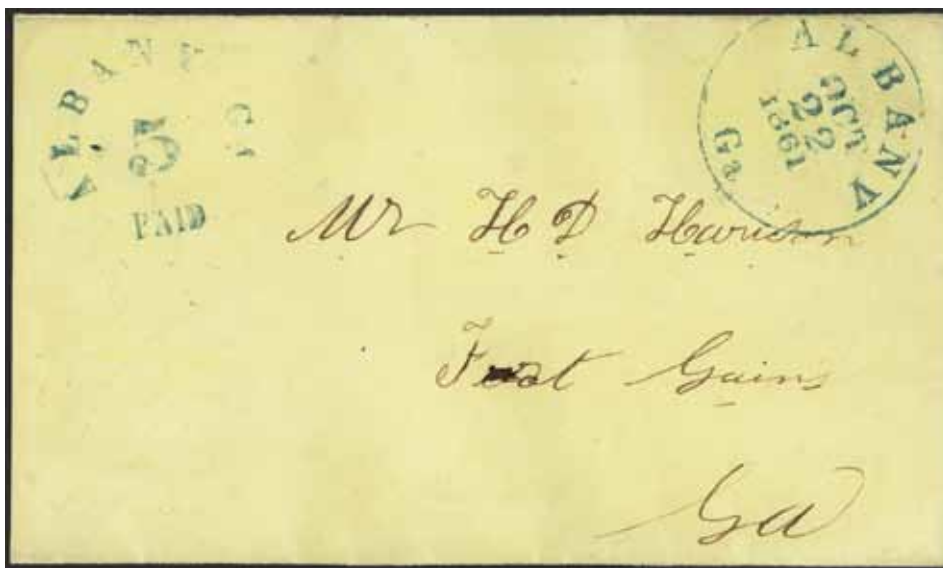 ALBANY Ga
5
PAID
ALBANY Ga
OCT
22
1861
Mr H D Harison
Fort Gains
Ga